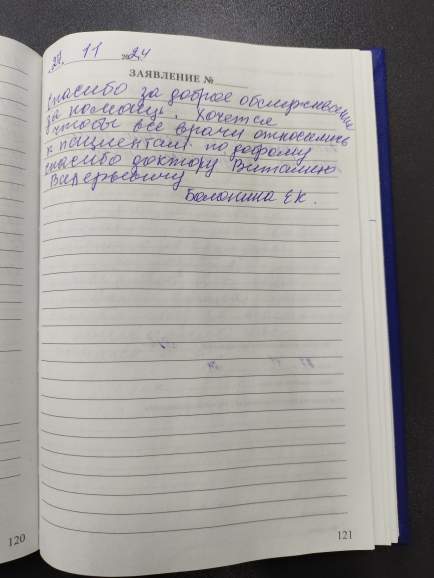 29. 11 2024
ЗАЯВЛЕНИЕ №
Спасибо за доброе обслуживание
за помощь. Хочется
чтобы все врачи относились
к пациентам по доброму
спасибо доктору Виталию
Валерьевичу
Балонина ЕК.
120
121